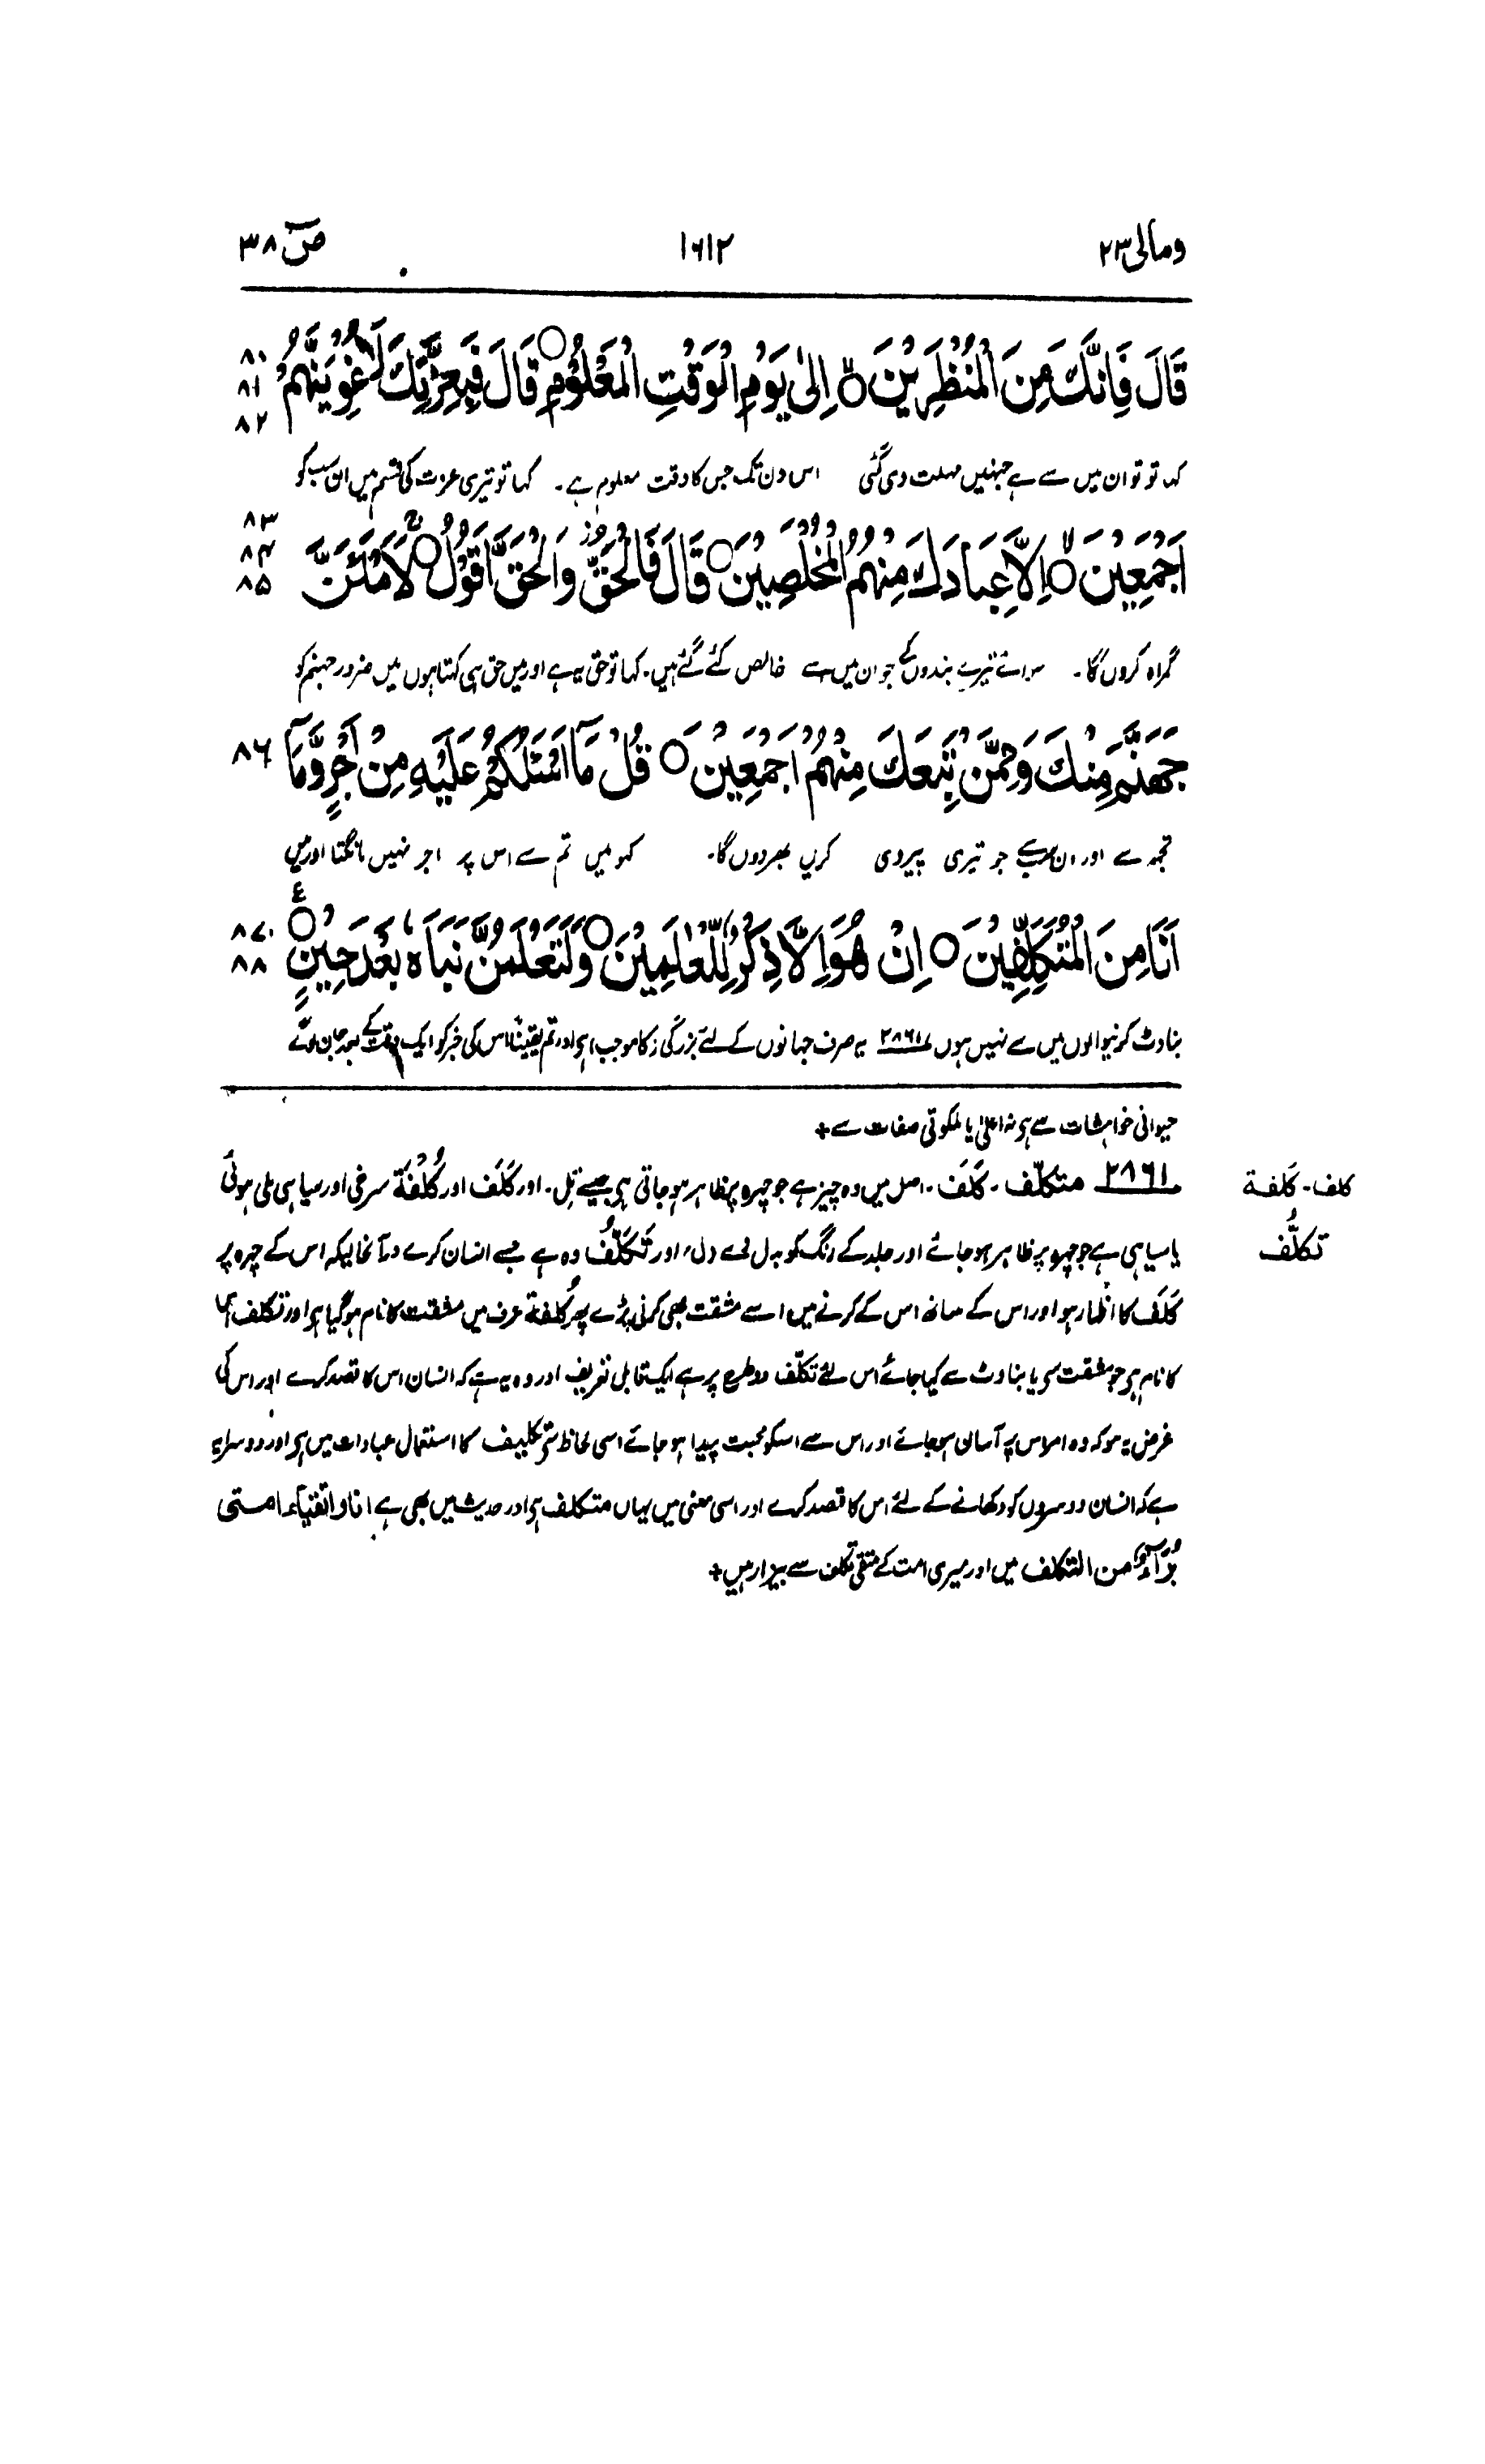 ومالی ۲۳ ۱۶۱۲ صٓ ۳۸
قَالَ فَاِنَّكَ مِنَ الْمُنْظَرِيْنَ ۙ○ اِلٰى يَوْمِ الْوَقْتِ الْمَعْلُوْمِ ○ قَالَ فَبِعِزَّتِكَ لَاُغْوِيَنَّهُمْ ۸۰ ۸۱ ۸۲
کہا تو تو ان میں سے ہے جنہیں مہلت دی گئی اس دن تک جس کا وقت معلوم ہے۔ کہا تو تیری عزت کی قسم میں ان سب کو
اَجْمَعِيْنَ ۙ○ اِلَّا عِبَادَكَ مِنْهُمُ الْمُخْلَصِيْنَ ○ قَالَ فَالْحَقُّ ز وَالْحَقَّ اَقُوْلُ ۚ○ لَاَمْلَئَنَّ ۸۳ ۸۴ ۸۵
گمراہ کروں گا۔ سوائے تیرے بندوں کے جو ان میں سے خالص کئے گئے ہیں۔ کہا تو حق یہ ہے اور میں حق ہی کہتا ہوں میں ضرور جہنم کو
جَهَنَّمَ مِنْكَ وَمِمَّنْ تَبِعَكَ مِنْهُمْ اَجْمَعِيْنَ ○ قُلْ مَآ اَسْئَلُكُمْ عَلَيْهِ مِنْ اَجْرٍ وَّمَآ ۸۶
تجھ سے اور ان سب سے جو تیری پیروی کریں بھر دوں گا۔ کہو میں تم سے اس پر اجر نہیں مانگتا اور میں
اَنَا مِنَ الْمُتَكَلِّفِيْنَ ○ اِنْ هُوَ اِلَّا ذِكْرٌ لِّلْعٰلَمِيْنَ ○ وَلَتَعْلَمُنَّ نَبَاَهٗ بَعْدَ حِيْنٍ ○ ع ۸۷ ۸۸
بناوٹ کرنیوالوں میں سے نہیں ہوں ۲۸۶۱ یہ صرف جہانوں کے لئے بزرگی (کا موجب) ہے اور تم یقیناً اس کی خبر کو ایک وقت کے بعد جان لوگے
حیوانی خواہشات سے ہو نہ اعلیٰ یا ملکوتی صفات سے +
۲۸۶۱ متکلّف ۔ کَلَفَ ۔ اصل میں وہ چیز ہے جو چہرہ پر ظاہر ہو جاتی ہے جیسے تِل ۔ اور کَلَف اور کُلْفَة سرخی اور سیاہی ملی ہوئی
کلف - کَلفة
یا سیاہی ہے جو چہرہ پر ظاہر ہو جائے اور جلد کے رنگ کو بدل دے (ل) اور تَکَلُّفُ وہ ہے جسے انسان کرے درآنحالیکہ اس کے چہرہ پر
تکلُّف
کَلَف کا اظہار ہو اور اس کے ساتھ اس کے کرنے میں اسے مشقت بھی کرنی پڑے پھر کُلفة عرف میں مشقت کا نام ہو گیا ہے اور تکلف اس
کا نام ہے جو مشقت سے یا بناوٹ سے کیا جائے اس لئے تکلّف دو طرح پر ہے ایک قابل تعریف اور وہ یہ ہے کہ انسان اس کا قصد کرے اور اس کی
غرض یہ ہو کہ وہ امر اس پر آسان ہو جائے اور اس سے اسکو محبت پیدا ہو جائے اسی لحاظ سے تکلیف کا استعمال عبادات میں ہے اور دوسرا یہ
ہے کہ انسان دوسروں کو دکھانے کے لئے اس کا قصد کرے اور اسی معنی میں یہاں متکلف ہے اور حدیث میں بھی ہے انا و اتقیاء امتی
بُرَآءُ من التکلف میں اور میری امت کے متقی تکلف سے بیزار ہیں +